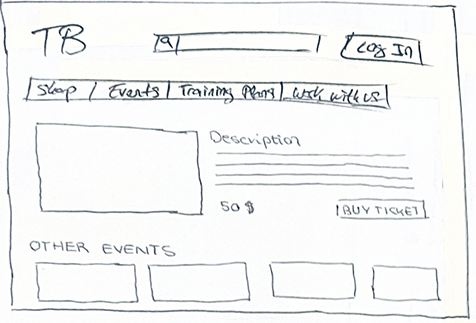 TB Log In
Shop / Events Training Plans Work with us
Description
50 $ BUY TICKET
OTHER EVENTS